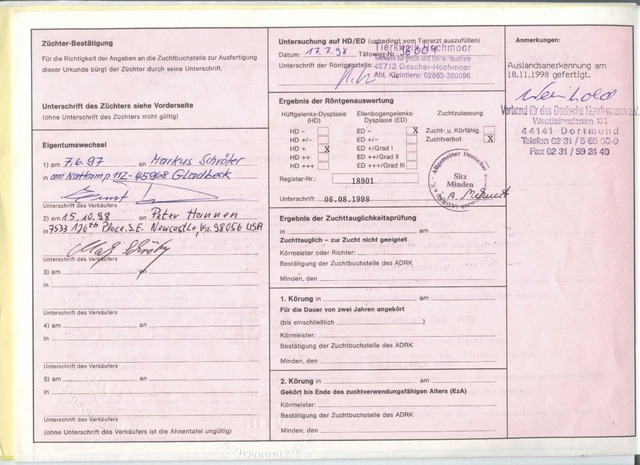 Züchter-Bestätigung
Für die Richtigkeit der Angaben an die Zuchtbuchstelle zur Ausfertigung
dieser Urkunde bürgt der Züchter durch seine Unterschrift.
Unterschrift des Züchters siehe Vorderseite
(ohne Unterschrift des Züchters nicht gültig)
Eigentumswechsel
1) am 7.6.97 an Markus Schröter
in am Nattkamp 112 - 45968 Gladbeck
Unterschrift des Verkäufers
2) am 15.10.98 an Peter Hannen
in 7533 126th Place S.E. Newcastle, Wa. 98056 USA
Unterschrift des Verkäufers
3) am an
in
Unterschrift des Verkäufers
4) am an
in
Unterschrift des Verkäufers
5) am an
in
Unterschrift des Verkäufers
(ohne Unterschrift des Verkäufers ist die Ahnentafel ungültig)
Untersuchung auf HD/ED (unbedingt vom Tierarzt auszufüllen)
Datum: 17.7.98 Tätowier-Nr.
Unterschrift der Röntgenstelle:
Tierklinik Hochmoor
Tierklinik für große und kleine Haustiere
45712 Gescher-Hochmoor
Abt. Kleintiere: 02863-380096
Ergebnis der Röntgenauswertung
Hüftgelenks-Dysplasie
(HD)
HD –
HD +/–
HD + X
HD ++
HD +++
Ellenbogengelenks-
Dysplasie (ED)
ED – X
ED +/–
ED +/Grad I
ED ++/Grad II
ED +++/Grad III
Zuchtzulassung
Zucht- u. Körfähig
Zuchtverbot X
Register-Nr.: 18901
Unterschrift: 06.08.1998
Allgemeiner Deutscher
Sitz
Minden
Ergebnis der Zuchttauglichkeitsprüfung
in am
Zuchttauglich – zur Zucht nicht geeignet
Körmeister oder Richter:
Bestätigung der Zuchtbuchstelle des ADRK
Minden, den
1. Körung in am
Für die Dauer von zwei Jahren angekört
(bis einschließlich )
Körmeister:
Bestätigung der Zuchtbuchstelle des ADRK
Minden, den
2. Körung in am
Gekört bis Ende des zuchtverwendungsfähigen Alters (EzA)
Körmeister:
Bestätigung der Zuchtbuchstelle des ADRK
Minden, den
Anmerkungen:
Auslandsanerkennung am
18.11.1998 gefertigt.
Verband für das Deutsche Hundewesen e.V.
Westfalendamm 174
44141 Dortmund
Telefon 02 31 / 5 65 00-0
Fax 02 31 / 59 24 40